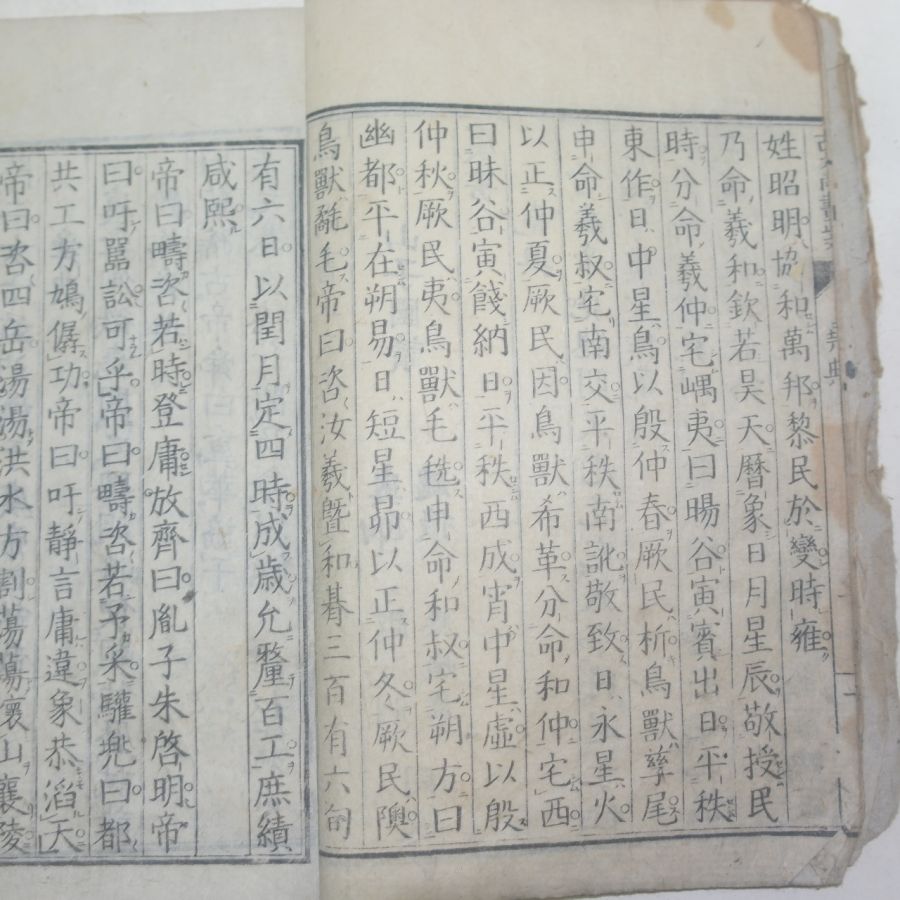 姓昭明協和萬邦黎民於變時雍
乃命羲和欽若昊天曆象日月星辰敬授民
時分命羲仲宅嵎夷曰暘谷寅賓出日平秩
東作日中星鳥以殷仲春厥民析鳥獸孳尾
申命羲叔宅南交平秩南訛敬致日永星火
以正仲夏厥民因鳥獸希革分命和仲宅西
曰昧谷寅餞納日平秩西成宵中星虛以殷
仲秋厥民夷鳥獸毛毨申命和叔宅朔方曰
幽都平在朔易日短星昴以正仲冬厥民隩
鳥獸氄毛帝曰咨汝羲曁和朞三百有六旬
有六日以閏月定四時成歳允釐百工庶績
咸熙
帝曰疇咨若時登庸放齊曰胤子朱啓明帝
曰吁嚚訟可乎帝曰疇咨若予采驩兜曰都
共工方鳩僝功帝曰吁靜言庸違象恭滔天
帝曰咨四岳湯湯洪水方割蕩蕩懷山襄陵